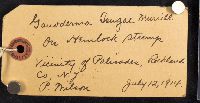 Ganoderma Tsugae Murrill
On Hemlock stump
Vicinity of Palisades, Rockland
Co, N.Y.
P. Wilson July 12, 1914.